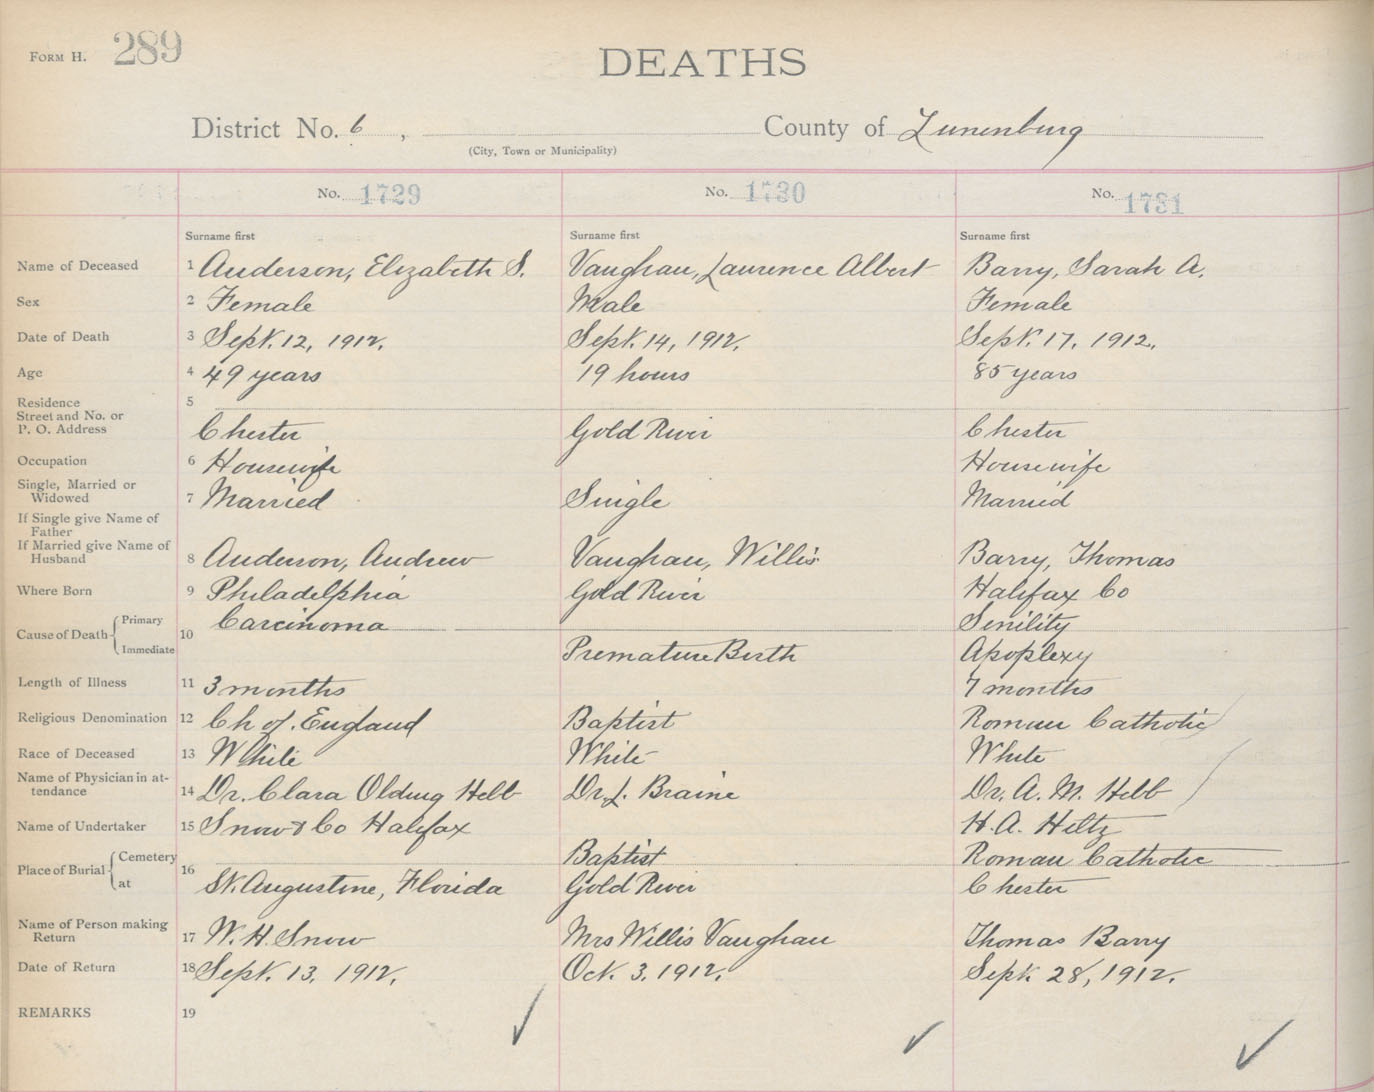 FORM H. 289
DEATHS
District No. 6, County of Lunenburg
(City, Town or Municipality)
No. 1729 No. 1730 No. 1731
Surname first Surname first Surname first
Name of Deceased 1 Anderson, Elizabeth S. Vaughan, Laurence Albert Barry, Sarah A.
Sex 2 Female Male Female
Date of Death 3 Sept. 12, 1912. Sept. 14, 1912. Sept. 17, 1912.
Age 4 49 years 19 hours 85 years
Residence 5
Street and No. or
P. O. Address Chester Gold River Chester
Occupation 6 Housewife Housewife
Single, Married or
Widowed 7 Married Single Married
If Single give Name of
Father
If Married give Name of
Husband 8 Anderson, Andrew Vaughan, Willis Barry, Thomas
Where Born 9 Philadelphia Gold River Halifax Co
Cause of Death 10 Primary Carcinoma Senility
Immediate Premature Birth Apoplexy
Length of Illness 11 3 months 7 months
Religious Denomination 12 Ch of. England Baptist Roman Catholic
Race of Deceased 13 White White White
Name of Physician in at-
tendance 14 Dr. Clara Olding Hebb Dr. J. Braine Dr. A. M. Hebb
Name of Undertaker 15 Snow & Co Halifax H. A. Hiltz
Place of Burial 16 Cemetery Baptist Roman Catholic
at St. Augustine, Florida Gold River Chester
Name of Person making
Return 17 W. H. Snow Mrs Willis Vaughan Thomas Barry
Date of Return 18 Sept. 13, 1912. Oct. 3, 1912. Sept. 28, 1912.
REMARKS 19